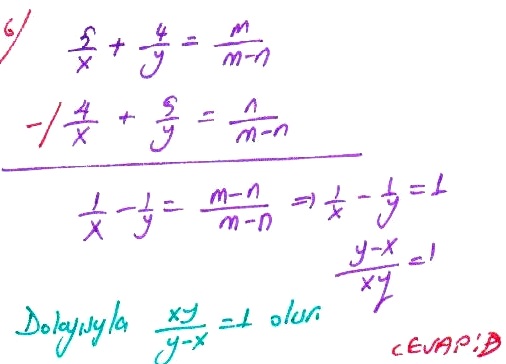 6/ 5/x + 4/y = m/(m-n)
-/ 4/x + 5/y = n/(m-n)
1/x - 1/y = (m-n)/(m-n) ⇒ 1/x - 1/y = 1
(y-x)/(xy) = 1
Dolayısıyla xy/(y-x) = 1 olur.
CEVAP: B